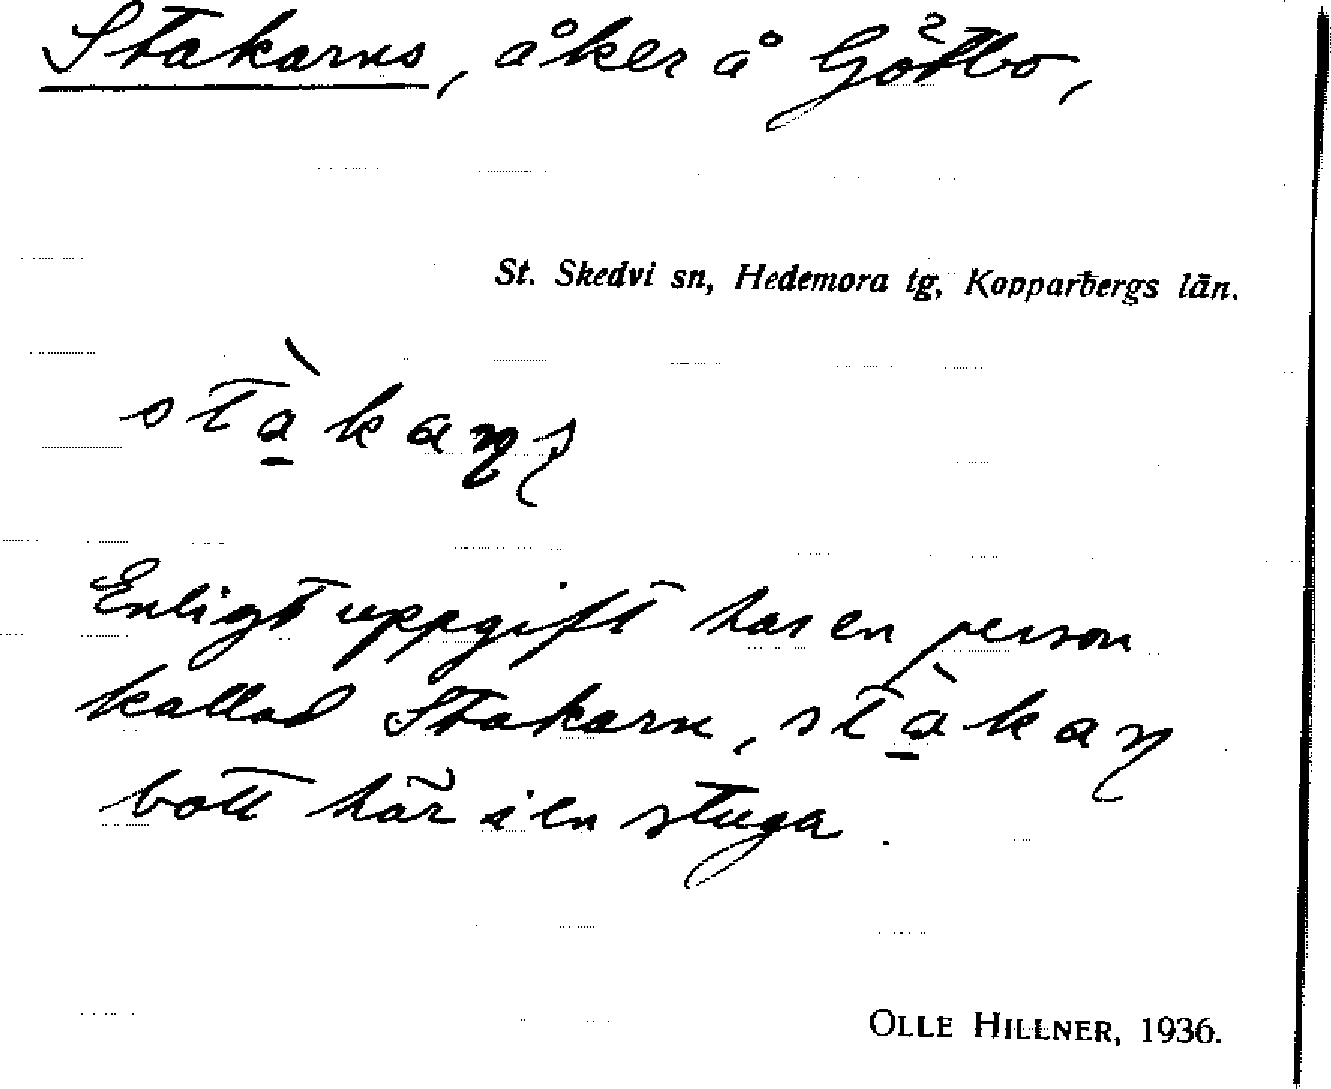 Stakarns, åker å Götbo,
St. Skedvi sn, Hedemora tg, Kopparbergs län.
stà̱kaṇṣ
Enligt uppgift har en person
kallad Stakarn, stà̱kaṇ
bott här i en stuga.
OLLE HILLNER, 1936.